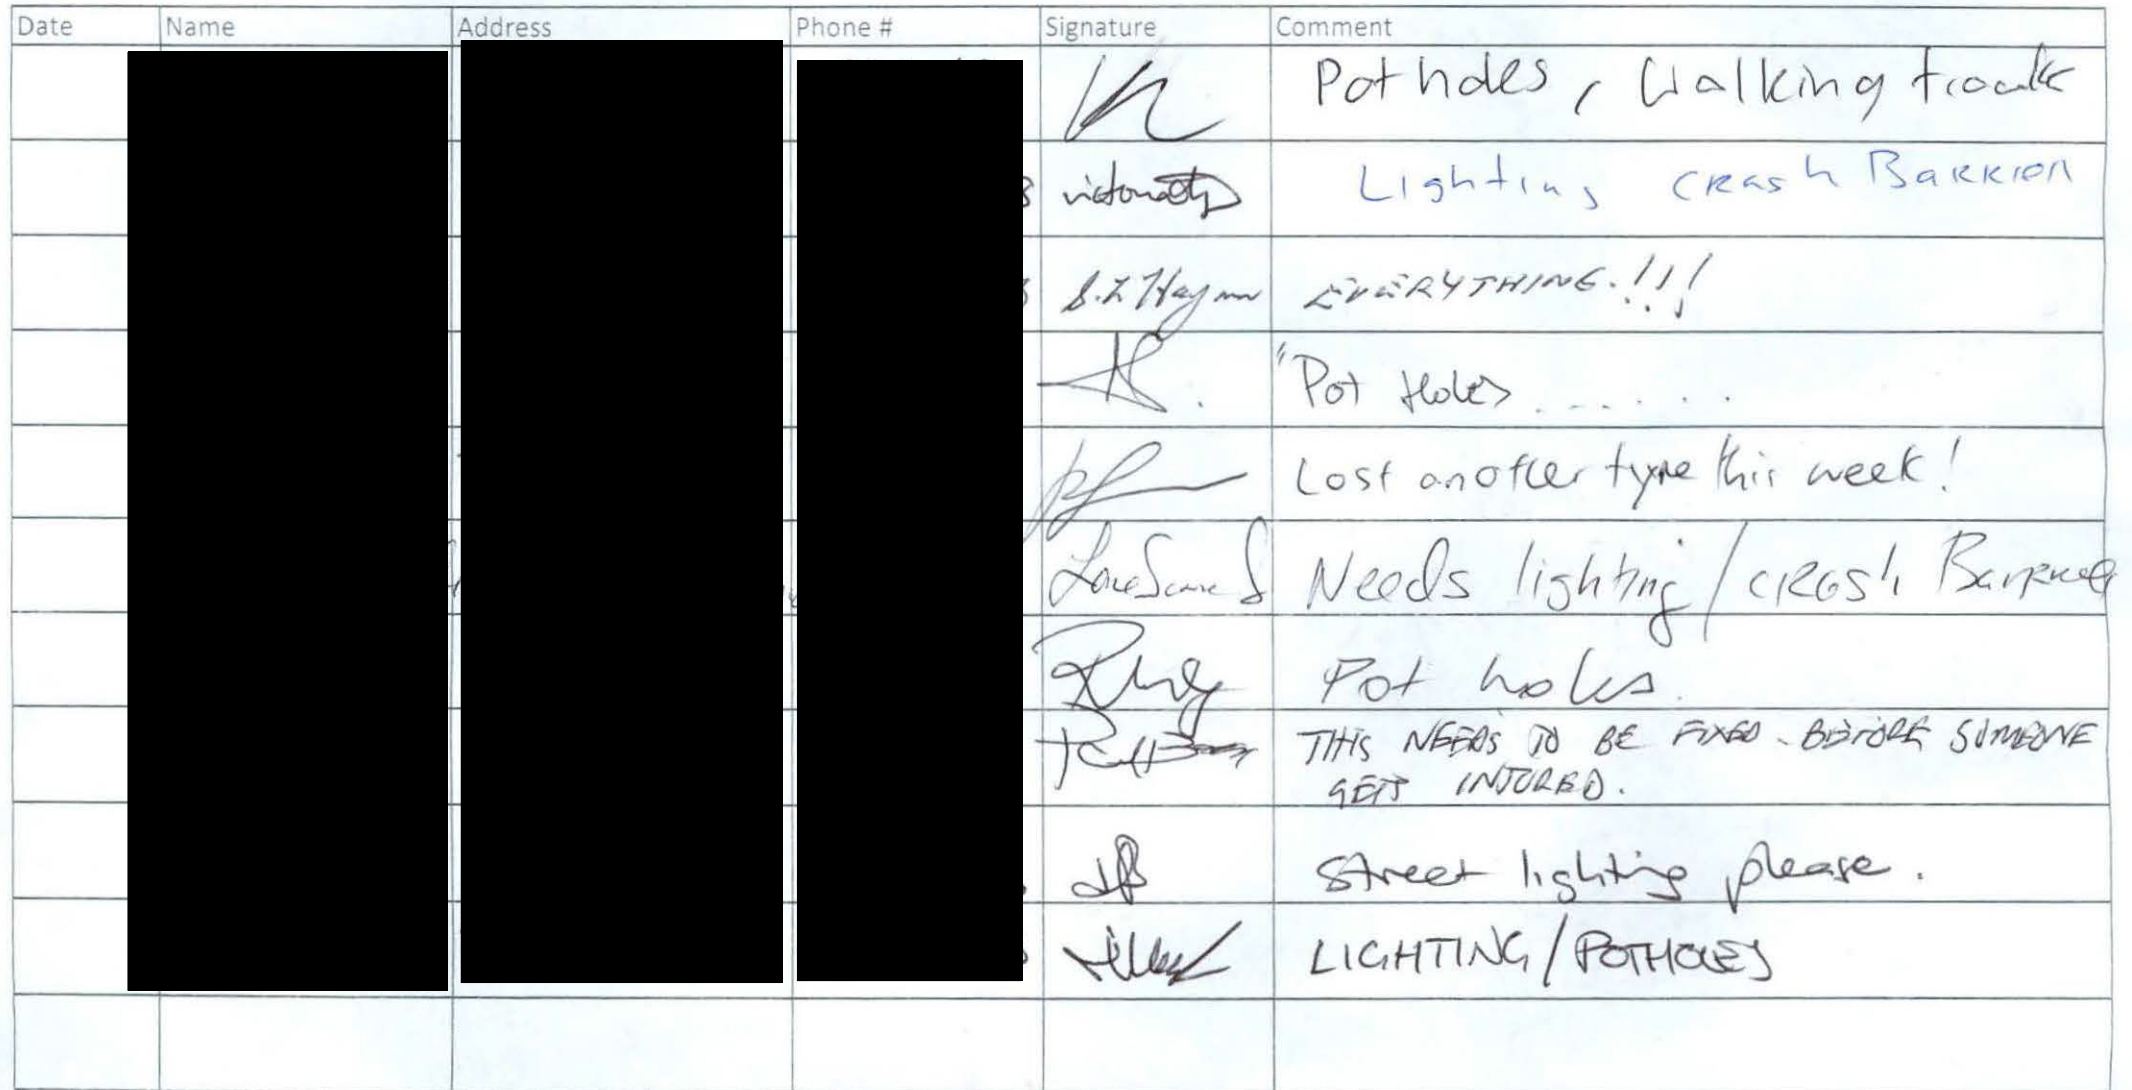 Date Name Address Phone # Signature Comment
Potholes, Walking track
Lighting crash Barrier
S.L Hayman EVERYTHING.!!!
"Pot Holes ......
Lost another tyre this week!
Needs lighting / crash Barrier
Pot holes.
THIS NEEDS TO BE FIXED. BEFORE SOMEONE
GETS INJURED.
Street lighting please.
LIGHTING/POTHOLES